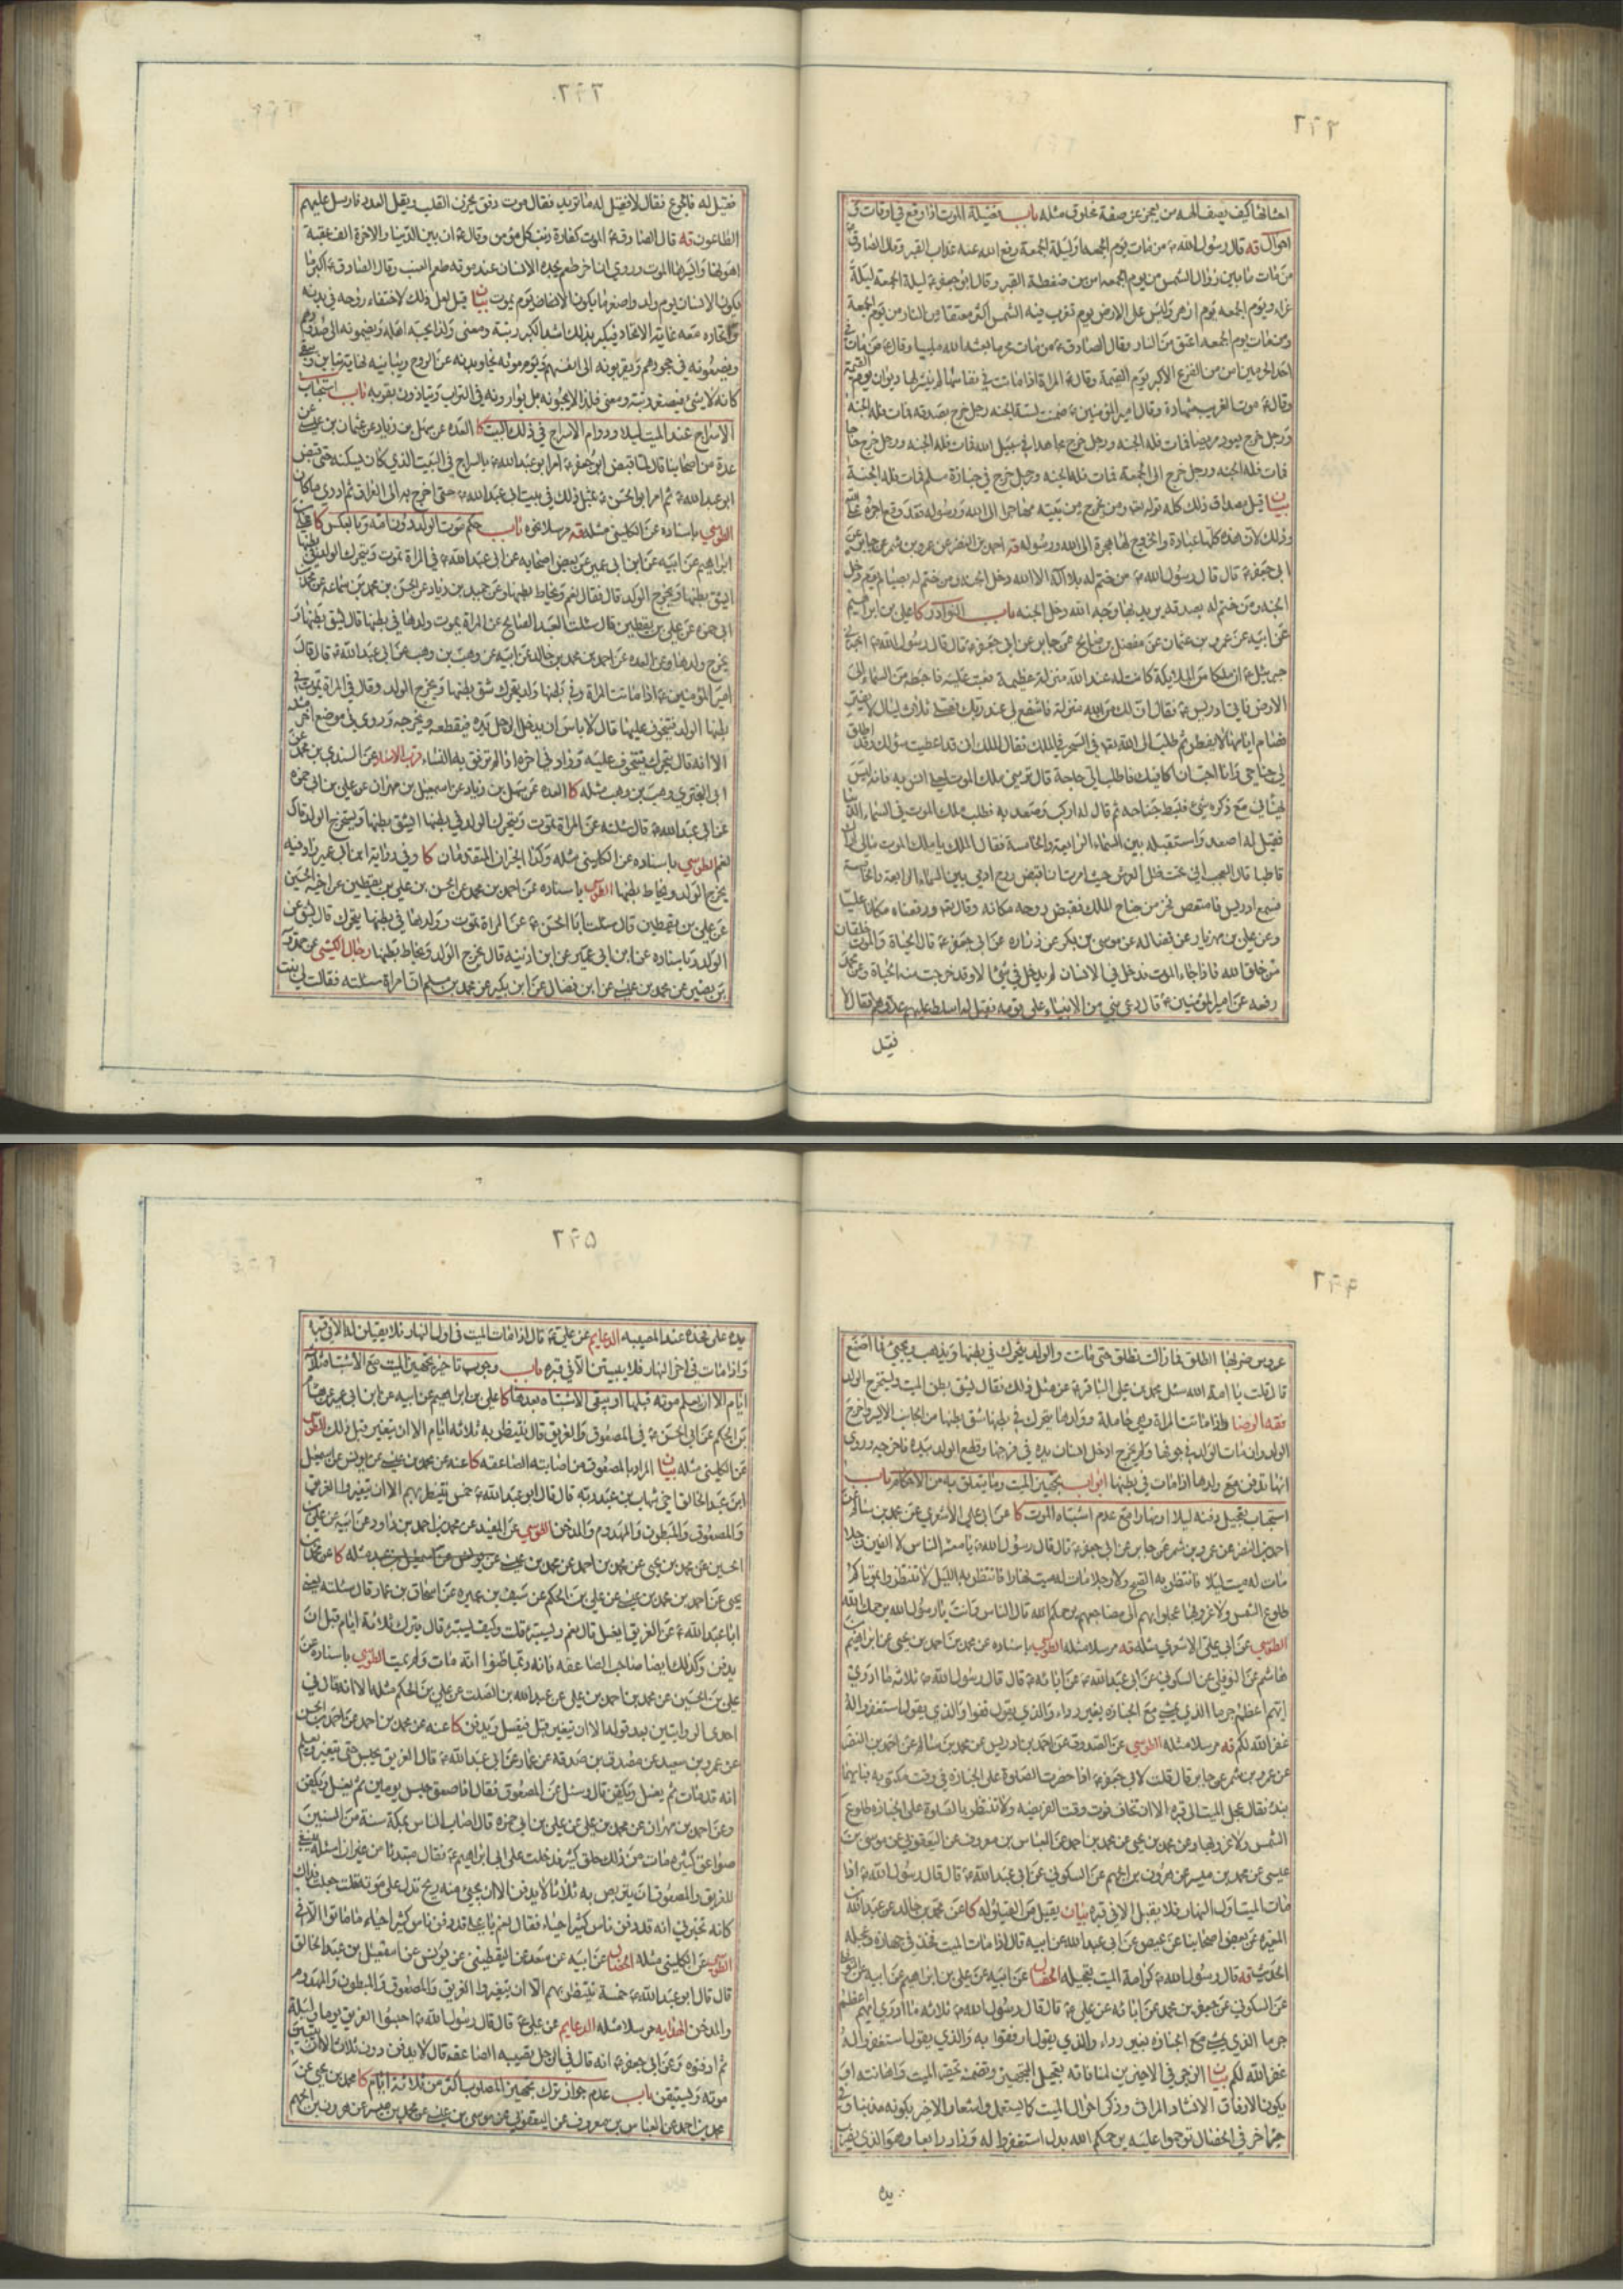 احشائها كيف يصف الهه من يعجز عن صفة مخلوق مثله باب فضيلة الموت اذا وقع في اوقات و
احوال قه قال رسول الله من مات يوم الجمعه او ليلة الجمعة رفع الله عنه عذاب القبر وقال الصادق
من مات ما بين زوال الشمس من يوم الجمعه امن من ضغطة القبر وقال ابو جعفر ليلة الجمعة ليلة
غراء ويوم الجمعه يوم ازهر وليس على الارض يوم تغرب فيه الشمس اكثر معتقا من النار من يوم الجمعة
ومن مات يوم الجمعه اعتق من النار وقال الصادق من مات محرما بعثه الله ملبيا وقال من مات في
احد الحرمين امن من الفزع الاكبر يوم القيمة وقال المراة اذا ماتت في نفاسها لم ينشر لها ديوان يوم القيمة
وقال موت الغريب شهادة وقال امير المؤمنين ضمنت لستة الجنه رجل خرج بصدقه فمات فله الجنة
ورجل خرج يعود مريضا فمات فله الجنه ورجل خرج مجاهدا في سبيل الله فمات فله الجنه ورجل خرج حاجا
فمات فله الجنه ورجل خرج الى الجمعة فمات فله الجنه ورجل خرج في جنازة مسلم فمات فله الجنة
بيان قيل مصداق ذلك كله قوله ومن يخرج من بيته مهاجرا الى الله ورسوله فقد وقع اجره على الله
وذلك لان هذه كلها عبادة والخروج لها هجرة الى الله ورسوله قه احمد بن النضر عن عمرو بن شمر عن جابر عن
ابي جعفر قال قال رسول الله من ختم له بلا اله الا الله دخل الجنه ومن ختم له بصيام يوم دخل
الجنه ومن ختم له بصدقه يريد بها وجه الله دخل الجنه باب النوادر كا علي بن ابراهيم
عن ابيه عن عمرو بن عثمان عن مفضل بن صالح عن جابر عن ابي جعفر قال قال رسول الله اخبرني
جبرئيل ان ملكا من الملايكة كانت له عند الله منزلة عظيمة فعتب عليه فاهبطه من السماء الى
الارض فاتى ادريس فقال ان لك من الله منزلة فاشفع لي عند ربك فصلى ثلاث ليال لا يفتر
وصام ايامها لا يفطر ثم طلب الى الله في السحر في الملك فقال الملك ان قد اعطيت سؤلك وقد اطلق
لي جناحي وانا احب ان اكافيك فاطلب الي حاجة قال تريني ملك الموت لعلي انس به فانه ليس
يهنأني مع ذكره شيء فبسط جناحه ثم قال له اركب وصعد به فطلب ملك الموت في السماء الدنيا
فقيل له اصعد فاستقبله بين السماء الرابعة والخامسة فقال الملك يا ملك الموت مالي اراك
قاطبا قال العجب اني تحت ظل العرش حيث امرت ان اقبض روح ادمي بين السماء الرابعة والخامسة
فسمع ادريس فامتعض فخر من جناح الملك فقبض روحه مكانه وقال ورفعناه مكانا عليا
وعن علي بن مهزيار عن فضاله عن موسى بن بكر عن زراره عن ابي جعفر قال الحياة والموت خلقان
من خلق الله فاذا جاء الموت فدخل في الانسان لم يدخل في شئ الا وقد خرجت منه الحياة وعن محمد
رفعه عن امير المؤمنين قال دعى نبي من الانبياء على قومه فقيل له اسلط عليهم عدوهم فقال لا
فقيل
فقيل له فالجوع فقال لا فقيل له ما تريد فقال موت دفيق يحزن القلب ويقل العدد فارسل عليهم
الطاعون قه قال الصادق الموت كفارة ذنب كل مؤمن وقال ان بين الدنيا والاخرة الف عقبة
اهونها وايسرها الموت وروي ان اخر طعم يجده الانسان عند موته طعم العنب وقال الصادق اكبر ما
يكون الانسان يوم ولد واصغر ما يكون الانسان يوم يموت بيان قيل لعل ذلك لاختفاء روحه في بدنه
واتحاده معه غاية الاتحاد فيكبر بذلك اشد الكبر رتبة ومعنى ولذا يحبه اهله ويضمونه الى صدورهم
ويضعونه في حجورهم ويقربونه الى انفسهم ويوم موته يجاوز بدنه عن الروح ويباينه نهاية تباين ويبقى
كانه لا شئ فيصغر رتبة ومعنى فلذا لا يحبونه بل يوارونه في التراب ويتاذون بقربه باب استحباب
الاسراج عند الميت ليلا ودوام الاسراج في ذلك البيت كا العده عن سهل بن زياد عن عثمان بن عيسى عن
عدة من اصحابنا قال لما قبض ابو جعفر امر ابو عبد الله بالسراج في البيت الذي كان يسكنه حتى قبض
ابو عبد الله ثم امر ابو الحسن بمثل ذلك في بيت ابي عبد الله حتى اخرج به الى العراق ثم لا ادري ما كان
الطوسي باسناده عن الكليني مثله قه مرسلا نحوه باب حكم موت الولد دون امه وبالعكس كا علي بن
ابراهيم عن ابيه عن ابن ابي عمير عن بعض اصحابه عن ابي عبد الله في المراة تموت ويتحرك الولد في بطنها
ايشق بطنها ويخرج الولد قال فقال نعم ويخاط بطنها وعن حميد بن زياد عن الحسن بن محمد بن سماعه عن محمد بن
ابي حمزه عن علي بن يقطين قال سئلت العبد الصالح عن المراة تموت ولدها في بطنها قال يشق بطنها و
يخرج ولدها وعن العده عن احمد بن محمد بن خالد عن ابيه عن وهب بن وهب عن ابي عبد الله قال قال
امير المؤمنين اذا ماتت المراة وفي بطنها ولد يتحرك شق بطنها ويخرج الولد وقال في المراة تموت في
بطنها الولد فيتخوف عليها قال لا باس ان يدخل الرجل يده فيقطعه ويخرجه وروي في موضع اخر مثله
الا انه قال يتحرك فيتخوف عليه وزاد في اخره اذا لم ترفق به النساء قرب الاسناد عن السندي بن محمد عن
ابي البختري وهب بن وهب مثله كا العده عن سهل بن زياد عن اسمعيل بن مهران عن علي بن ابي حمزه
عن ابي عبد الله قال سئلته عن المراة تموت ويتحرك الولد في بطنها ايشق بطنها ويستخرج الولد قال
نعم الطوسي باسناده عن الكليني مثله وكذا الخبران المتقدمان كا وفي رواية ابن ابي عمير زاد فيه
يخرج الولد ويخاط بطنها الطوسي باسناده عن احمد بن محمد عن الحسن بن علي بن يقطين عن اخيه الحسين
عن علي بن يقطين قال سئلت ابا الحسن عن المراة تموت وولدها في بطنها يتحرك قال يشق عن
الولد وباسناده عن ابن ابي عمير عن ابن اذينه قال يخرج الولد ويخاط بطنها رجال الكشي عن حمدويه
بن نصير عن محمد بن عيسى عن ابن فضال عن ابن بكير عن محمد بن مسلم ان امراة سئلته فقالت لي بنت
عروس ضربها الطلق فما زالت تطلق حتى ماتت والولد يتحرك في بطنها ويذهب ويجيئ فما اصنع
قال قلت يا امة الله سئل محمد بن علي الباقر عن مثل ذلك فقال يشق بطن الميت ويستخرج الولد
فقه الرضا واذا ماتت المراة وهي حاملة وولدها يتحرك في بطنها شق بطنها من الجانب الايسر واخرج
الولد وان مات الولد في جوفها ولم يخرج ادخل انسان يده في فرجها وقطع الولد بيده فاخرجه وروي
انها تدفن مع ولدها اذا مات في بطنها ابواب تجهيز الميت وما يتعلق به من الاحكام باب
استحباب تعجيل دفنه ليلا او نهارا مع عدم اشتباه الموت كا عن ابي علي الاشعري عن محمد بن سالم عن
احمد بن النضر عن عمرو بن شمر عن جابر عن ابي جعفر قال قال رسول الله يا معشر الناس لا الفين رجلا
مات له ميت ليلا فانتظر به الصبح ولا رجلا مات له ميت نهارا فانتظر به الليل لا تنتظروا بموتاكم
طلوع الشمس ولا غروبها عجلوا بهم الى مضاجعهم يرحمكم الله قال الناس وانت يا رسول الله يرحمك الله
الطوسي عن ابي علي الاشعري مثله قه مرسلا مثله الطوسي باسناده عن محمد بن احمد بن يحيى عن ابراهيم بن
هاشم عن النوفلي عن السكوني عن ابي عبد الله عن ابائه قال قال رسول الله ثلاثه ما ادري
ايهم اعظم جرما الذي يمشي مع الجنازه بغير رداء والذي يقول قفوا والذي يقول استغفروا له
غفر الله لكم قه مرسلا مثله الطوسي عن الصدوق عن احمد بن ادريس عن محمد بن سالم عن احمد بن النضر
عن عمرو بن شمر عن جابر قال قلت لابي جعفر اذا حضرت الصلوة على الجنازه في وقت مكتوبه فبايهما
ابدء فقال عجل الميت الى قبره الا ان تخاف فوت وقت الفريضه ولا تنتظر بالصلوة على الجنازه طلوع
الشمس ولا غروبها وعن محمد بن يحيى عن محمد بن احمد عن العباس بن معروف عن اليعقوبي عن موسى بن
عيسى عن محمد بن ميسر عن هرون بن الجهم عن السكوني عن ابي عبد الله قال قال رسول الله اذا
مات الميت اول النهار فلا يقيل الا في قبره بيان يقيل من القيلوله كا عن محمد بن خالد عن عبد الله بن
المغيره عن بعض اصحابنا عن عيص عن ابي عبد الله عن ابيه قال اذا مات الميت فخذ في جهازه وعجله
الحديث قه قال رسول الله كرامة الميت تعجيله الخصال عن ابيه عن علي بن ابراهيم عن ابيه عن النوفلي
عن السكوني عن جعفر بن محمد عن ابائه عن علي قال قال رسول الله ثلاثه ما ادري ايهم اعظم
جرما الذي يمشي مع الجنازه بغير رداء والذي يقول ارفقوا به والذي يقول استغفروا له
غفر الله لكم بيان الزجر في الاخيرين لمنافاته بتعجيل التجهيز وتضمنه تحقير الميت واهانته او
يكون الارفاق الانشاد المراثي وذكر احوال الميت كما يستعمل واشعار الاخر بكونه مذنبا و في
خبر اخر في الخصال ترحموا عليه يرحمكم الله بدل استغفروا له وزاد رابعا وهو الذي يضرب
يده
يده على فخذه عند المصيبه الدعايم عن علي قال اذا مات الميت في اول النهار فلا يقيلن الا في قبره
واذا مات في اخر النهار فلا يبيتن الا في قبره باب وجوب تاخير تجهيز الميت مع الاشتباه ثلاثة
ايام الا ان يعلم موته قبلها او يبقى الاشتباه بعدها كا علي بن ابراهيم عن ابيه عن ابن ابي عمير عن هشام
بن الحكم عن ابي الحسن في المصعوق والغريق قال ينتظر به ثلاثه ايام الا ان يتغير قبل ذلك الطوسي
عن الكليني مثله بيان المراد بالمصعوق من اصابته الصاعقه كا عنه عن محمد بن عيسى عن يونس عن اسمعيل
ابن عبد الخالق اخي شهاب بن عبد ربه قال قال ابو عبد الله خمس ينتظر بهم الا ان يتغيروا الغريق
والمصعوق والمبطون والمهدوم والمدخن الطوسي عن المفيد عن محمد بن احمد بن داود عن ابيه عن علي بن
الحسين عن محمد بن يحيى عن محمد بن احمد عن محمد بن عيسى عن يونس عن اسمعيل مثله كا عن محمد بن
يحيى عن احمد بن محمد بن عيسى عن علي بن الحكم عن سيف بن عميره عن اسحاق بن عمار قال سئلته يعني
ابا عبد الله عن الغريق ايغسل قال نعم ويستبرء قلت وكيف يستبرء قال يترك ثلاثة ايام قبل ان
يدفن وكذلك ايضا صاحب الصاعقه فانه ربما ظنوا انه مات ولم يمت الطوسي باسناده عن
علي بن الحسين عن محمد بن احمد بن علي عن عبد الله بن الصلت عن علي بن الحكم مثله الا انه قال في
احدى الروايتين بعد قوله الا ان يتغير قبل فيغسل ويدفن كا عنه عن محمد بن احمد عن احمد بن الحسن
عن عمرو بن سعيد عن مصدق بن صدقه عن عمار عن ابي عبد الله قال الغريق يحبس حتى يتغير ويعلم
انه قد مات ثم يغسل ويكفن قال وسئل عن المصعوق فقال اذا صعق حبس يومين ثم يغسل ويكفن
وعن احمد بن مهران عن محمد بن علي عن علي بن ابي حمزه قال اصاب الناس بمكة سنة من السنين
صواعق كثيره مات من ذلك خلق كثير فدخلت على ابي ابراهيم فقال مبتدئا من غير ان اسئله ينبغي
للغريق والمصعوق ان يتربص به ثلاثا لا يدفن الا ان يجيئ منه ريح تدل على موته قلت جعلت فداك
كانه تخبرني انه قد دفن ناس كثير احياء فقال نعم يا علي قد دفن ناس كثير احياء ما ماتوا الا في
الطوسي عن الكليني مثله الخصال عن ابيه عن سعد عن اليقطيني عن يونس عن اسمعيل بن عبد الخالق
قال قال ابو عبد الله خمسة ينتظر بهم الا ان يتغيروا الغريق والمصعوق والمبطون والمهدوم
والمدخن الهدايه مرسلا مثله الدعايم عن علي قال قال رسول الله احبسوا الغريق يوما وليلة
ثم ادفنوه وعن ابي جعفر انه قال في الرجل يصيبه الصاعقه قال لا يدفن دون ثلاث الا ان يتبين
موته ويستيقن باب عدم جواز ترك تجهيز المصلوب اكثر من ثلاثة ايام كا محمد بن يحيى عن
محمد بن احمد عن العباس بن معروف عن اليعقوبي عن موسى بن عيسى عن محمد بن ميسر عن هرون بن الجهم